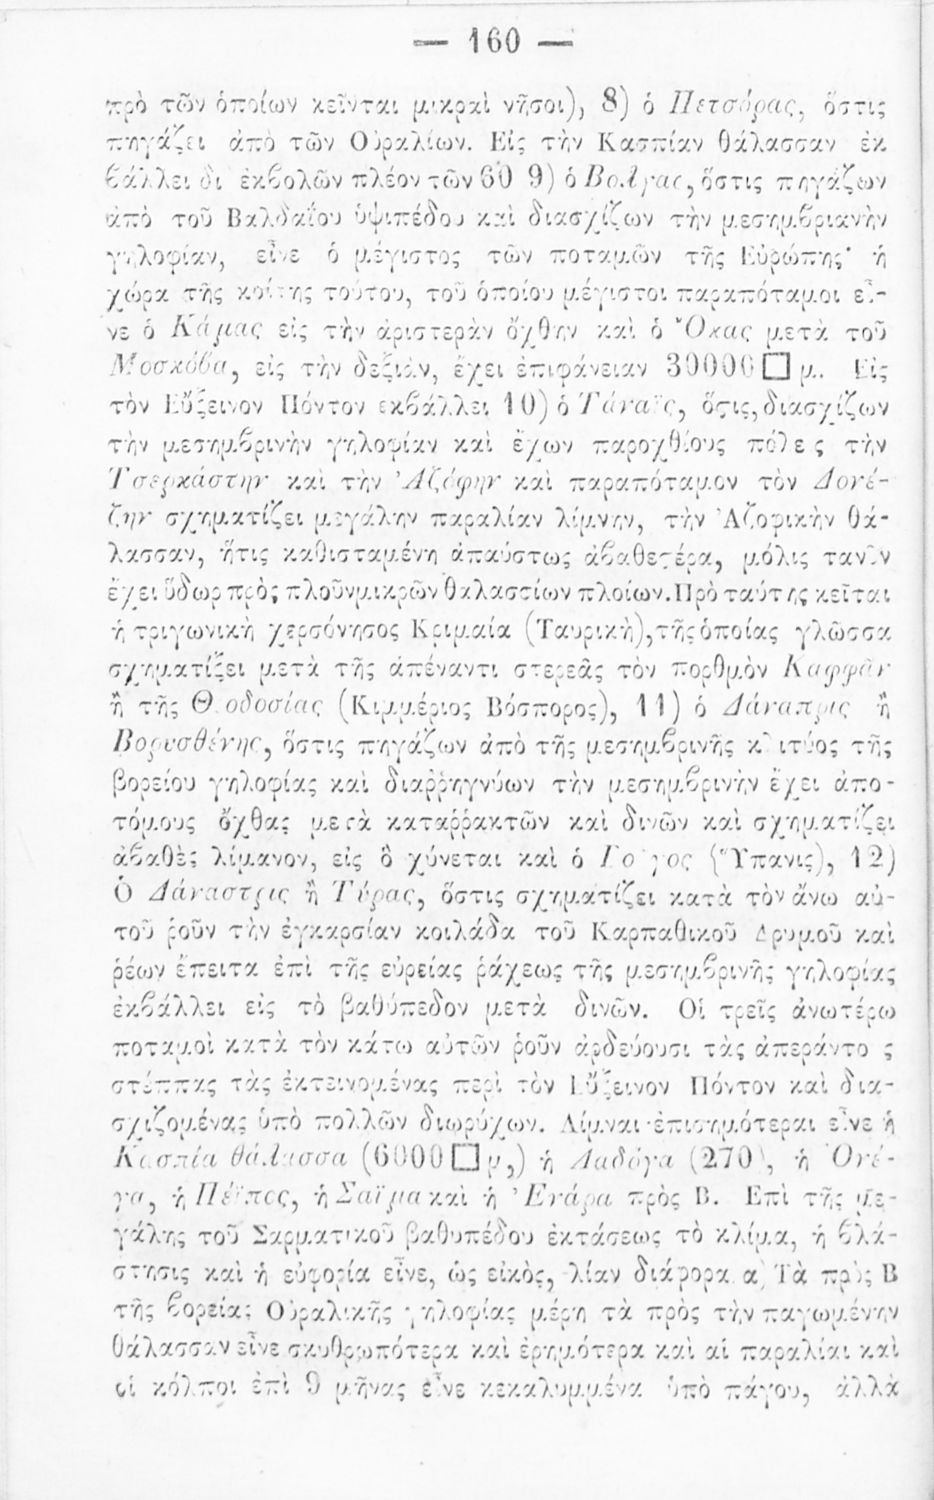 — 160 —
πρὸ τῶν ὁποίων κεῖνται μικραὶ νῆσοι), 8) ὁ Πετσόρας, ὅστις
πηγάζει ἀπὸ τῶν Οὐραλίων. Εἰς τὴν Κασπίαν θάλασσαν ἐκ
βάλλει δι ἐκβολῶν πλέον τῶν 60 9) ὁ Βολγας, ὅστις πηγάζων
ἀπὸ τοῦ Βαλδαΐου ὑψιπέδου καὶ διασχίζων τὴν μεσημβριανὴν
γηλοφίαν, εἶνε ὁ μέγιστος τῶν ποταμῶν τῆς Εὐρώπης· ἡ
χώρα τῆς κοίτης τούτου, τοῦ ὁποίου μέγιστοι παραπόταμοι εἶ-
νε ὁ Κάμας εἰς τὴν ἀριστερὰν ὄχθην καὶ ὁ Ὄκας μετὰ τοῦ
Μοσκόβα, εἰς τὴν δεξιὰν, ἔχει ἐπιφάνειαν 30000 □ μ.. Εἰς
τὸν Εὔξεινον Πόντον εκβάλλει 10) ὁ Τάναϊς, ὅςις, διασχίζων
τὴν μεσημβρινὴν γηλοφίαν καὶ ἔχων παροχθίους πόλεις τὴν
Τσερκάστην καὶ τὴν Ἀζόφην καὶ παραπόταμον τὸν Δονέ-
ζην σχηματίζει μεγάλην παραλίαν λίμνην, τὴν Ἀζοφικὴν θά-
λασσαν, ἥτις καθισταμένη ἀπαύστως ἀβαθεςέρα, μόλις τανῦν
ἔχει ὕδωρ πρὸς πλοῦν μικρῶν θαλασσίων πλοίων. Πρὸ ταύτης κεῖται
ἡ τριγωνικὴ χερσόνησος Κριμαία (Ταυρικὴ), τῆς ὁποίας γλῶσσα
σχηματίζει μετὰ τῆς ἀπέναντι στερεᾶς τὸν πορθμὸν Καφφᾶν
ἢ τῆς Θεοδοσίας (Κιμμέριος Βόσπορος), 11) ὁ Δάναπρις ἢ
Βορυσθένης, ὅστις πηγάζων ἀπὸ τῆς μεσημβρινῆς κλιτύος τῆς
βορείου γηλοφίας καὶ διαῤῥηγνύων τὴν μεσημβρινὴν ἔχει ἀπο-
τόμους ὄχθας μετὰ καταῤῥακτῶν καὶ δινῶν καὶ σχηματίζει
ἀβαθὲς λίμανον, εἰς ὃ χύνεται καὶ ὁ (Ὕπανις), 12)
Ὁ Δάναστρις ἢ Τύρας, ὅστις σχηματίζει κατὰ τὸν ἄνω αὑ-
τοῦ ῥοῦν τὴν ἐγκαρσίαν κοιλάδα τοῦ Καρπαθικοῦ Δρυμοῦ καὶ
ῥέων ἔπειτα ἐπὶ τῆς εὐρείας ῥάχεως τῆς μεσημβρινῆς γηλοφίας
ἐκβάλλει εἰς τὸ βαθύπεδον μετὰ δινῶν. Οἱ τρεῖς ἀνωτέρω
ποταμοὶ κατὰ τὸν κάτω αὐτῶν ῥοῦν ἀρδεύουσι τὰς ἀπεράντο ς
στέππας τὰς ἐκτεινομένας περὶ τὸν Εὔξεινον Πόντον καὶ δια-
σχιζομένας ὑπὸ πολλῶν διωρύχων. Λίμναι ἐπισημότεραι εἶνε ἡ
Κασπία θάλασσα (6000 □ μ,) ἡ Λαδόγα (270), ἡ Ὀνέ-
γα, ἡ Πέϊπος, ἡ Σαΐμα καὶ ἡ Ἐνάρα πρὸς Β. Επὶ τῆς με-
γάλης τοῦ Σαρματικοῦ βαθυπέδου ἐκτάσεως τὸ κλίμα, ἡ βλά-
στησις καὶ ἡ εὐφορία εἶνε, ὡς εἰκὸς, λίαν διάφορα α) Τὰ πρὸς Β
τῆς βορείας Οὐραλικῆς γηλοφίας μέρη τὰ πρὸς τὴν παγωμένην
θάλασσαν εἶνε σκυθρωπότερα καὶ ἐρημότερα καὶ αἱ παραλίαι καὶ
οἱ κόλποι ἐπὶ 9 μῆνας εἶνε κεκαλυμμένα ὑπὸ πάγου, ἀλλὰ